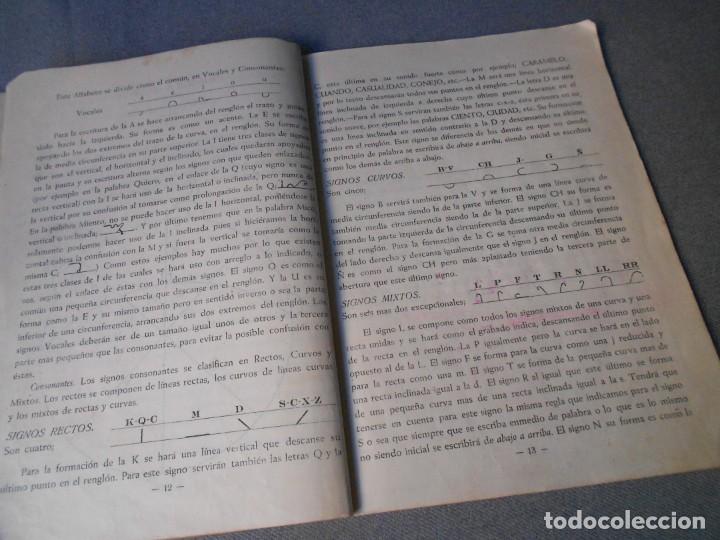 Este Alfabeto se divide como el común, en Vocales y Consonantes.
a e i o u
Vocales
Para la escritura de la A se hace arrancando del renglón el trazo y
hacia la izquierda. Su forma es como un acento. La E se escribe
apoyando los dos extremos del trazo de la curva, en el renglón. Su forma es
la de media circunferencia en su parte superior La I tiene tres clases de signos
que son el vertical, el horizontal y el inclinado, los cuales quedarán
en la pauta y su escritura alterna según los signos con que queden enlazados,
(por ejemplo en la palabra Quiero, en el enlace de la Q (cuyo signo es una
recta vertical) con la I se hará uso de la horizontal o inclinada, pero nunca
la vertical por su confusión al tomarse como prolongación de la Q,
En la palabra Mismo, no se puede hacer uso de la I horizontal, poniéndose la
vertical o inclinada. Y por último tenemos que en la palabra Muci,
solamente podemos hacer uso de la I inclinada pues si hiciéramos la
habrá la confusión con la M y si fuera la vertical se tomaría como la
misma C, ) Como estos ejemplos hay muchos por lo que existen
estas tres clases de I de las cuales se hará uso con arreglo a lo indicado, o
sea, según el enlace de éstas con los demás signos. El signo O es como el
común una pequeña circunferencia que descanse en el renglón. Y la U es su
forma como la E y su mismo tamaño pero en sentido inverso o sea la parte
inferior de una circunferencia, arrancando sus dos extremos del renglón. Los
signos Vocales deberán ser de un tamaño igual unos de otros y la tercera
parte más pequeños que las consonantes, para evitar la posible confusión con
éstas.
Consonantes. Los signos consonantes se clasifican en Rectos, Curvos y
Mixtos. Los rectos se componen de líneas rectas, los curvos de líneas curvas
y los mixtos de rectas y curvas.
SIGNOS RECTOS.
K-Q-C M D S-C-X-Z
Son cuatro;
Para la formación de la K se hará una línea vertical que descanse su
último punto en el renglón. Para este signo servirán también las letras Q y la
— 12 —
C, esta última en su sonido fuerte como por ejemplo; CARAMELO,
CUANDO, CASUALIDAD, CONEJO, etc.—La M será una línea horizontal
y por lo tanto descansando todos sus puntos en el renglón.—La letra D es una
línea inclinada de izquierda a derecha cuyo último punto descansa en el
renglón.—Para el signo S servirán también las letras c-x-z, ésta primera en su
sonido suave, por ejemplo las palabras CIENTO, CIUDAD, etc. Su formación
es una línea inclinada en sentido contrario a la D y descansando su último
punto en el renglón. Este signo se diferencia de los demás en que cuando
en principio de palabra se escribirá de abajo a arriba, siendo inicial se escribirá
como los demás de arriba a abajo.
SIGNOS CURVOS.
B-V CH J- G Ñ
Son cinco;
El signo B servirá también para la V y se forma de una línea curva de
media circunferencia siendo la de la parte inferior. El signo CH su forma es
también media circunferencia siendo la de la parte superior. La J se forma
tomando la parte izquierda de la circunferencia descansando su último punto
en el renglón. Para la formación de la G se toma otra media circunferencia
del lado derecho y descansa igualmente que el signo J en el renglón. El signo
Ñ es como el signo CH pero más aplastado teniendo la tercera parte de
abertura que este último signo.
SIGNOS MIXTOS.
L P F T R N LL RR
Son seis mas dos excepcionales;
El signo L se compone como todos los signos mixtos de una curva y una
recta unidas y se hará como el grabado indica, descansando el último punto
de la recta en el renglón.—La P igualmente pero la curva se hará en el lado
opuesto al de la L. El signo F se forma para la curva como una j reducida y
para la recta como una m. El signo T se forma de la pequeña curva mas de
una recta inclinada igual a la d. El signo R al igual que este último se forma
de una pequeña curva mas de una recta inclinada igual a la s. Tendrá que
tenerse en cuenta para este signo la misma regla que indicamos para el signo
S o sea que siempre que se escriba enmedio de palabra o lo que es lo mismo
no siendo inicial se escribirá de abajo a arriba. El signo N su forma es como la
— 13 —
todocoleccion
todocoleccion.net